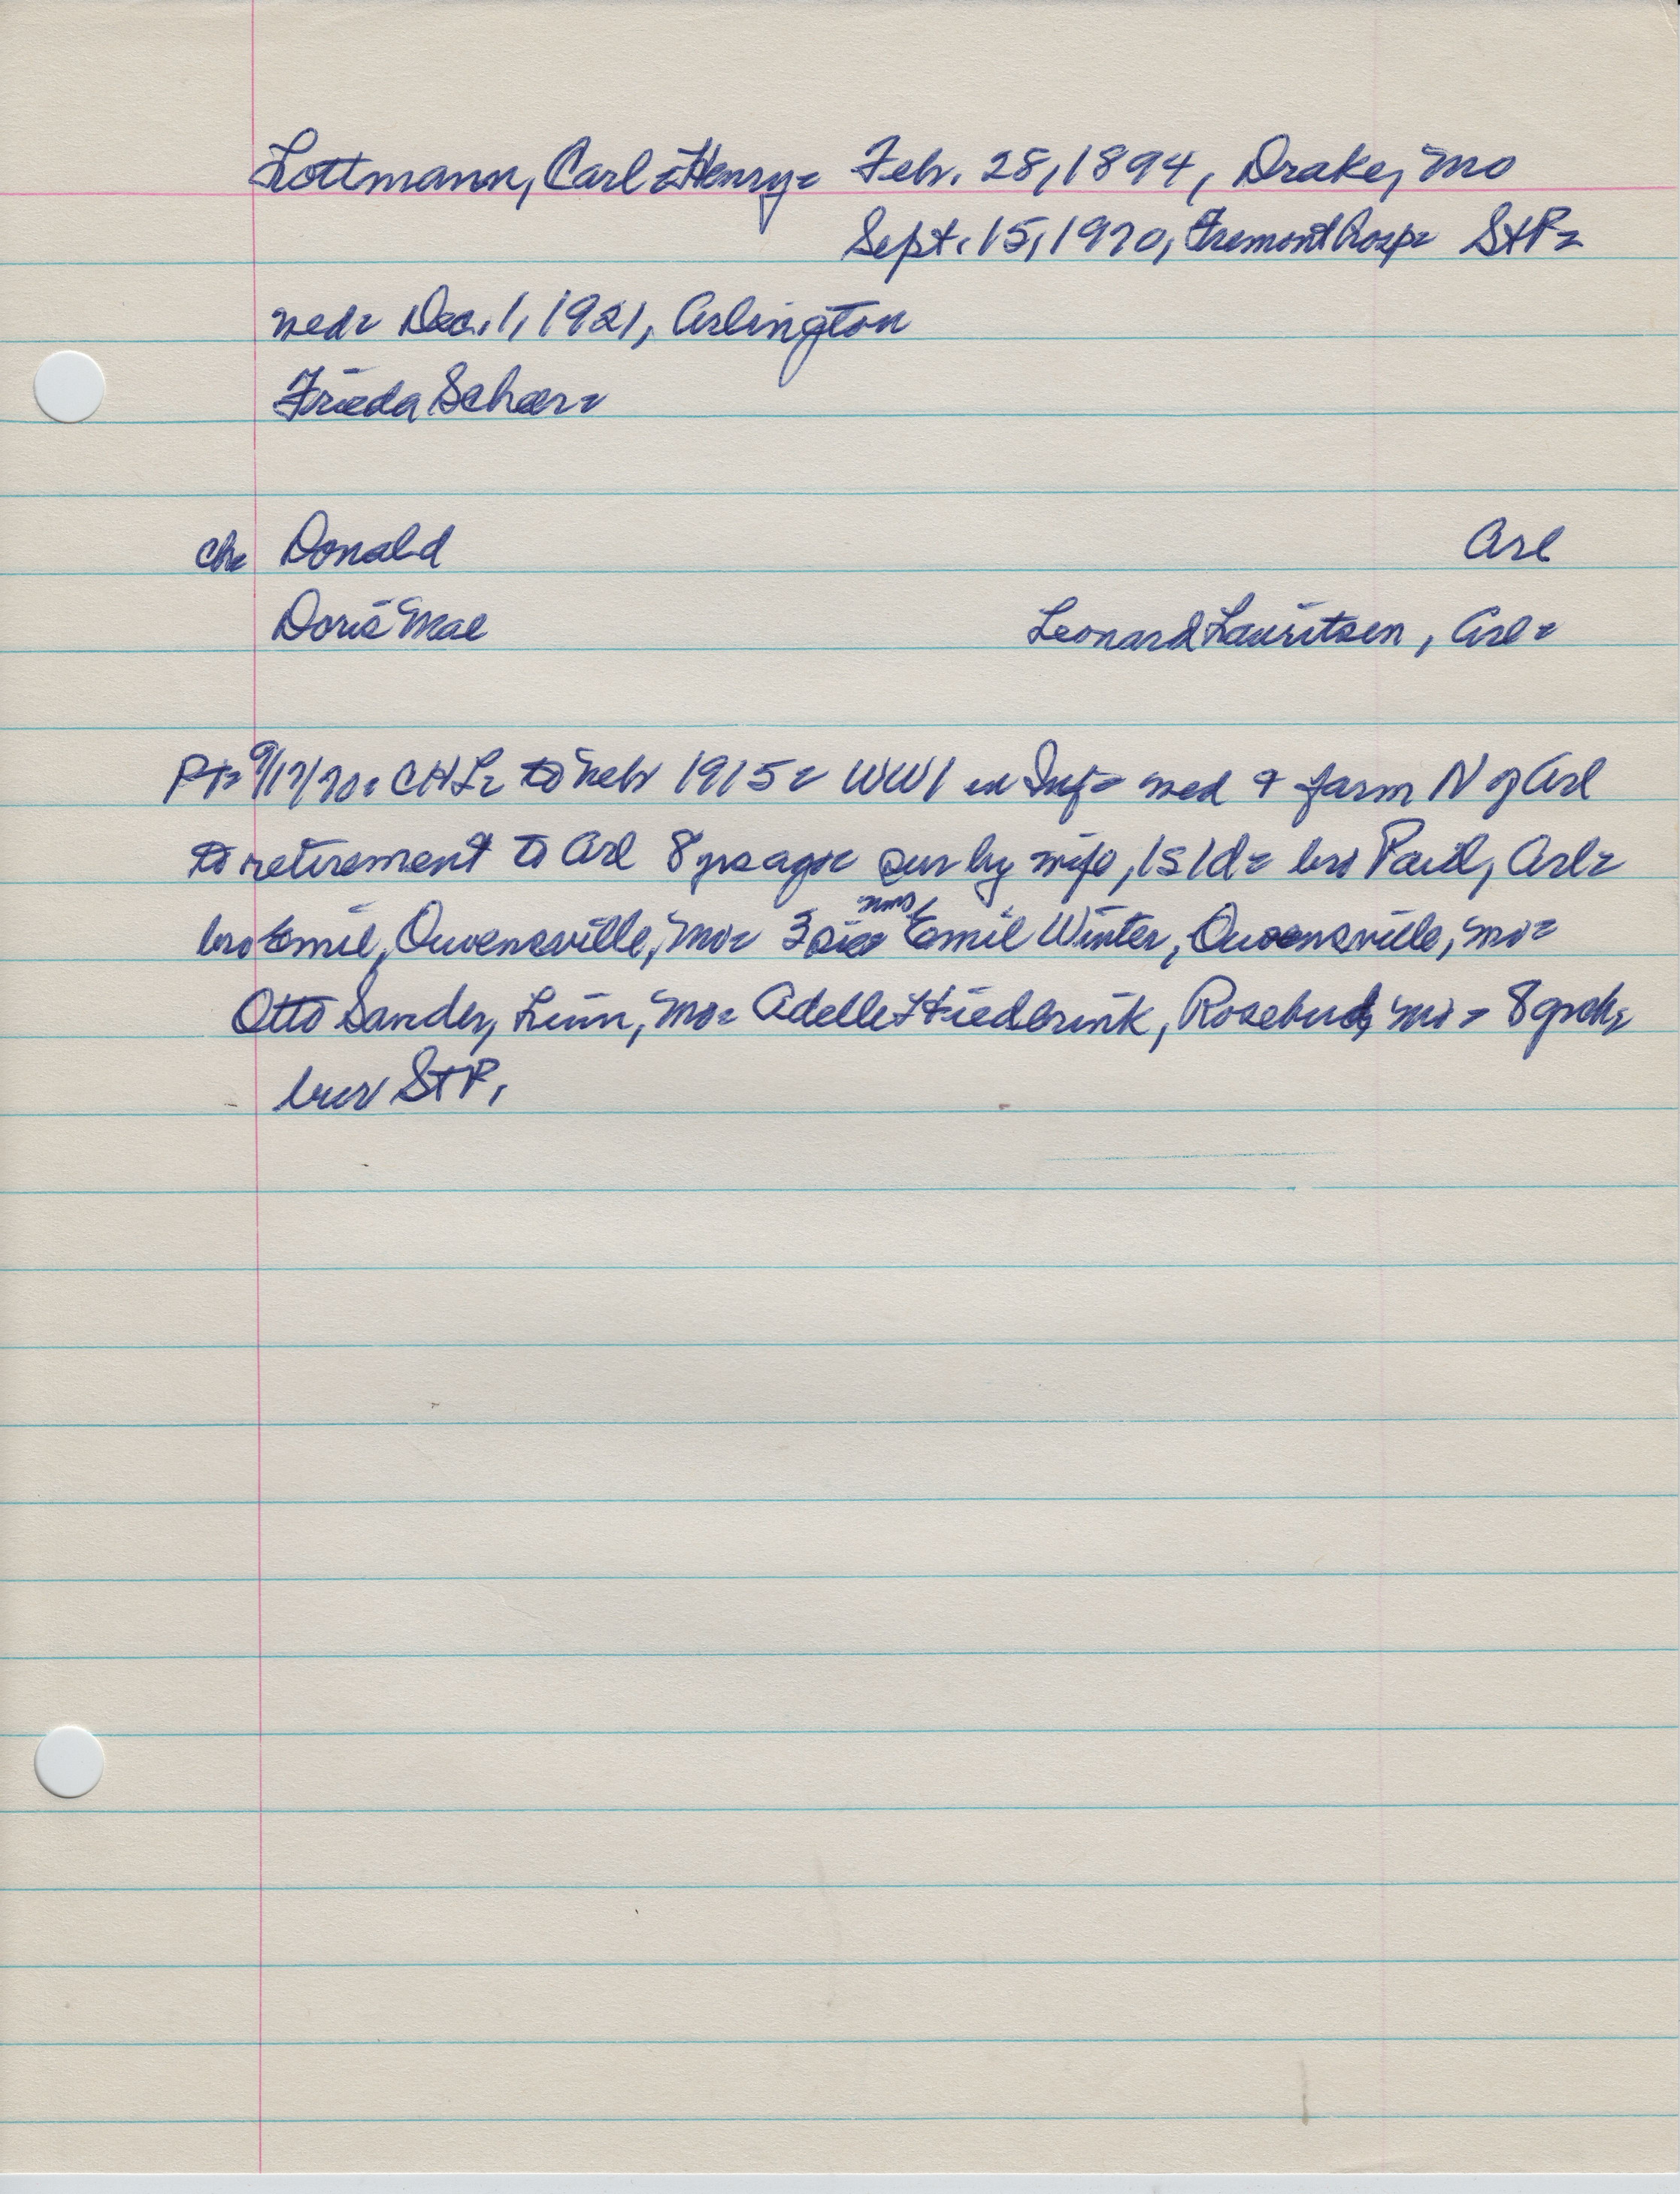 Lottmann, Carl Henry- Feb. 28, 1894, Drake, Mo
Sept. 15, 1970, Fremont Hosp- StP-
wed- Dec. 1, 1921, Arlington
Frieda Scheer-
ch- Donald Arl
Doris Mae Leonard Lauritsen, Arl-
PT- 9/17/70- CHL- to Nebr 1915- WW1 in Inf- wed & farm N of Arl
to retirement to Arl 8 yrs ago- sur by wife, 1s 1d- bro Paul, Arl-
bro Emil, Owensville, Mo- 3 sis Mms Emil Winter, Owensville, Mo-
Otto Sander, Linn, Mo- Adelle Hiedbrink, Rosebud, Mo- 8 grch,
bur StP.